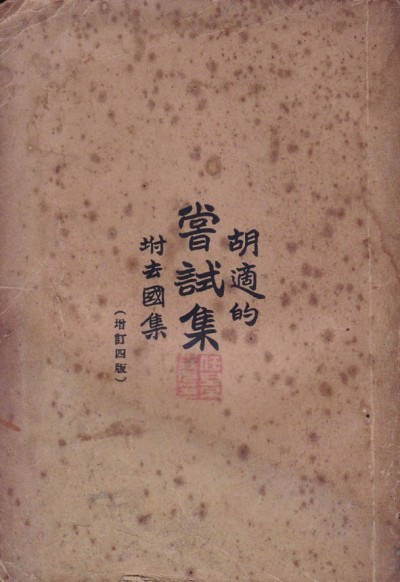 胡適的
嘗試集
坿去國集
(增訂四版)